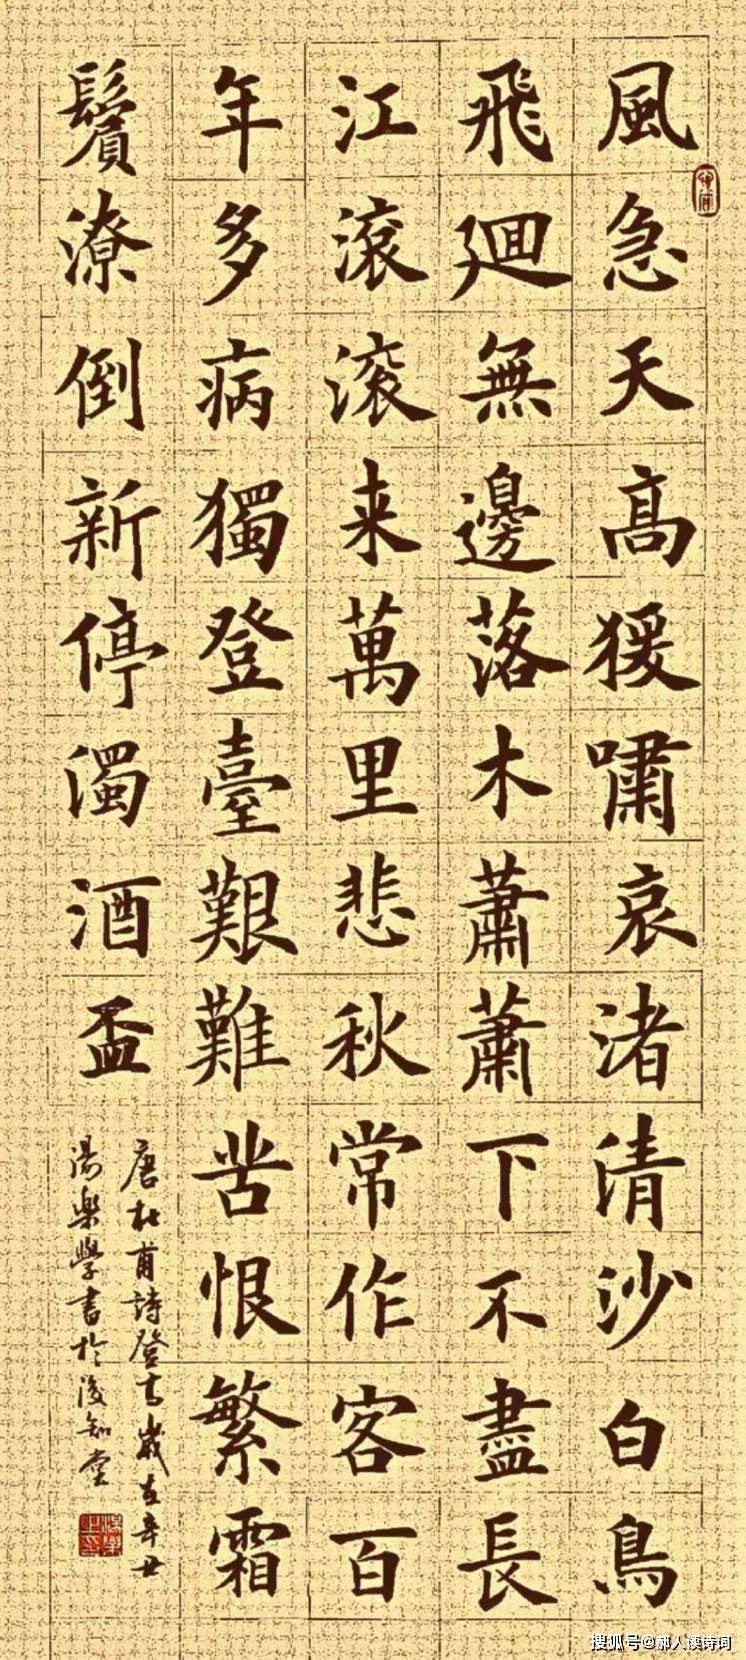 風急天高猨嘯哀渚清沙白鳥
飛廻無邊落木蕭蕭下不盡長
江滾滾来萬里悲秋常作客百
年多病獨登臺艱難苦恨繁霜
鬢潦倒新停濁酒盃
唐杜甫詩登高歲在辛丑
湯樂學書於後知堂
搜狐号@郝人读诗词